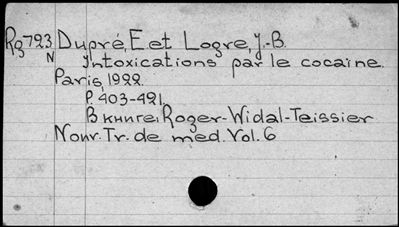 Rg 723 Dupré, E et Logre, J.-B.
N Intoxications par le cocaine.
Paris, 1922.
P. 403-421.
В книге: Roger-Widal-Teissier
Nouv. Tr. de med. Vol. 6